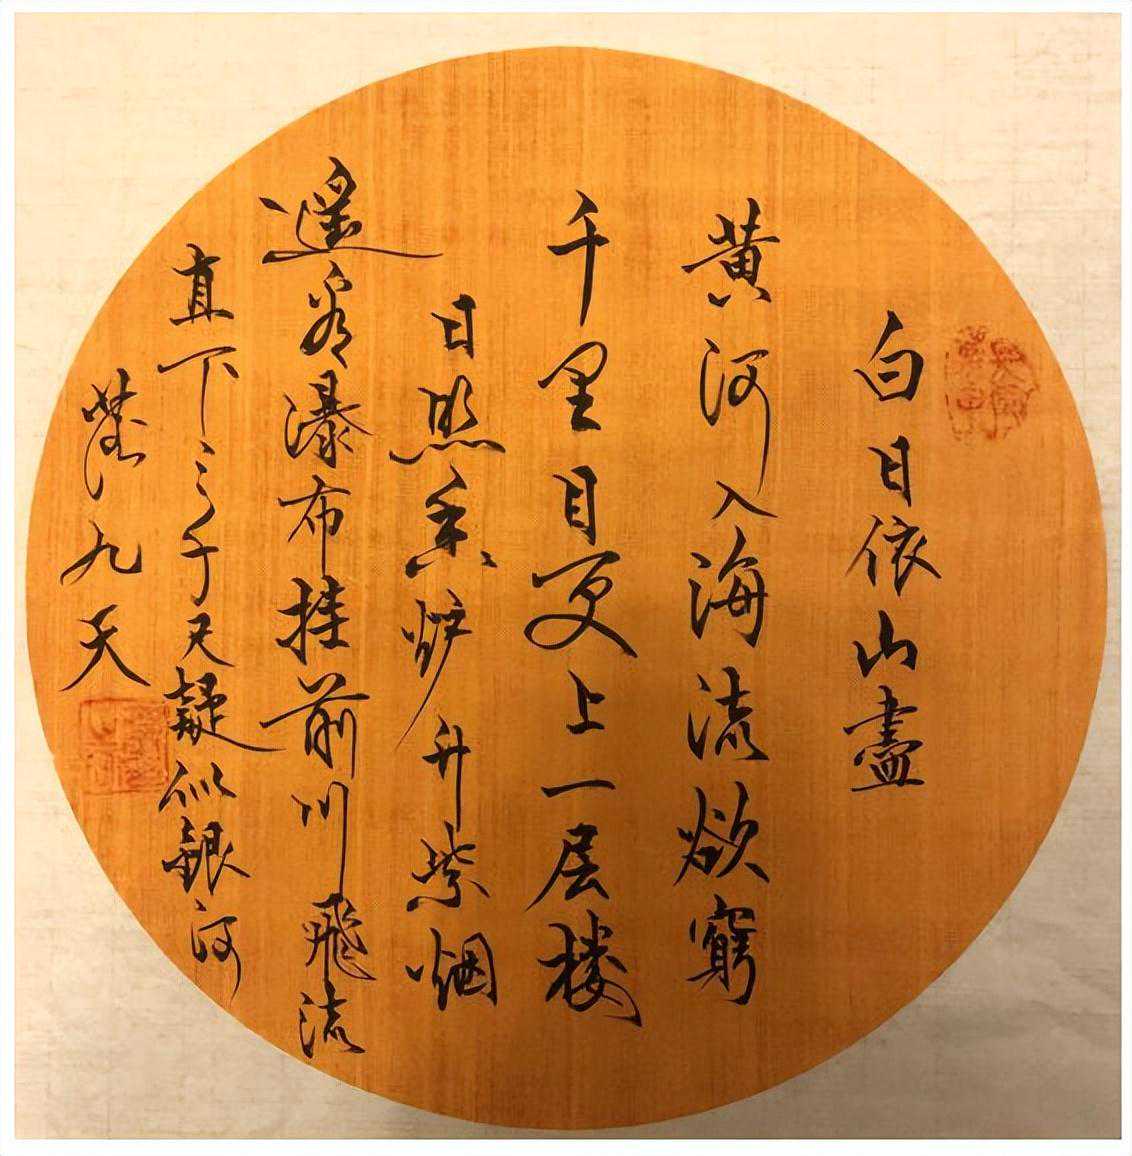 白日依山盡
黄河入海流欲窮
千里目更上一层楼
日照香炉升紫烟
遥看瀑布挂前川飛流
直下三千尺疑似銀河
落九天